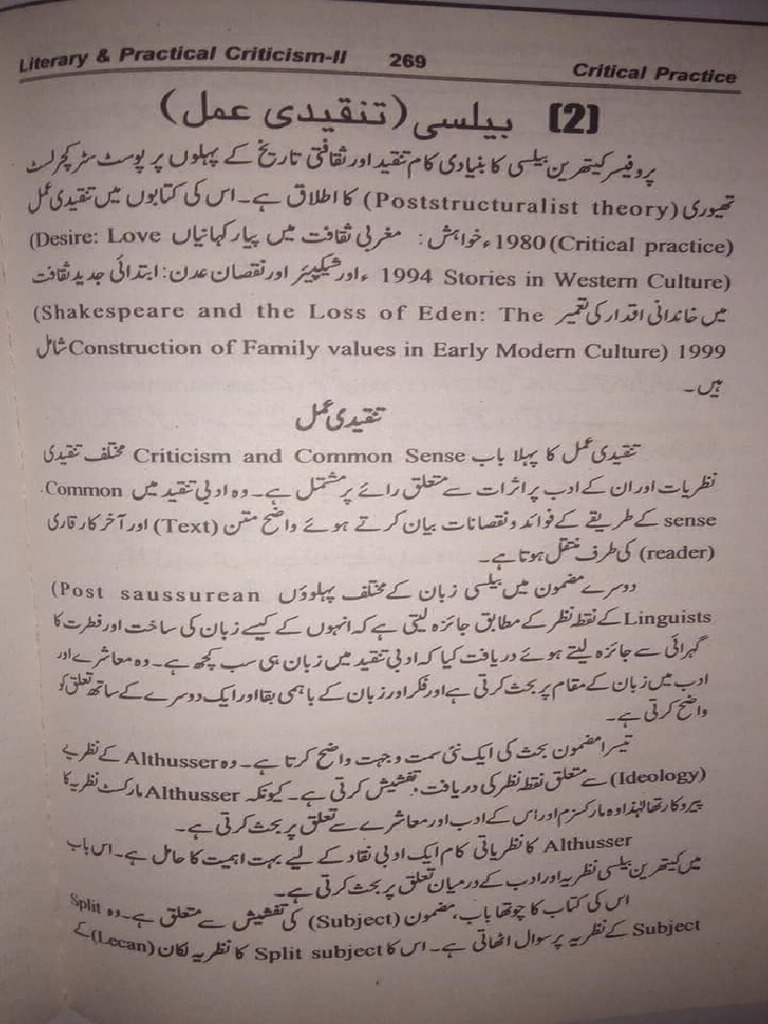 Literary & Practical Criticism-II 269 Critical Practice
(2) بیلسی (تنقیدی عمل)
پروفیسر کیتھرین بیلسی کا بنیادی کام تنقید اور ثقافتی تاریخ کے پہلوں پر پوسٹ سٹرکچرلسٹ
تھیوری (Poststructuralist theory) کا اطلاق ہے۔ اس کی کتابوں میں تنقیدی عمل
(Critical practice) 1980ء خواہش: مغربی ثقافت میں پیار کہانیاں (Desire: Love
Stories in Western Culture) 1994ء اور شیکسپیئر اور نقصان عدن: ابتدائی جدید ثقافت
میں خاندانی اقدار کی تعمیر (Shakespeare and the Loss of Eden: The
Construction of Family values in Early Modern Culture) 1999 شامل
ہیں۔
تنقیدی عمل
تنقیدی عمل کا پہلا باب Criticism and Common Sense مختلف تنقیدی
نظریات اور ان کے ادب پر اثرات سے متعلق رائے پر مشتمل ہے۔ وہ ادبی تنقید میں Common
sense کے طریقے کے فوائد و نقصانات بیان کرتے ہوئے واضح متن (Text) اور آخر کار قاری
(reader) کی طرف منتقل ہوتا ہے۔
دوسرے مضمون میں بیلسی زبان کے مختلف پہلوؤں (Post saussurean
Linguists کے نقطہ نظر کے مطابق جائزہ لیتی ہے کہ انہوں کے کیسے زبان کی ساخت اور فطرت کا
گہرائی سے جائزہ لیتے ہوئے دریافت کیا کہ ادبی تنقید میں زبان ہی سب کچھ ہے۔ وہ معاشرے اور
ادب میں زبان کے مقام پر بحث کرتی ہے اور فکر اور زبان کے باہمی بقا اور ایک دوسرے کے ساتھ تعلق کو
واضح کرتی ہے۔
تیسرا مضمون بحث کی ایک نئی سمت و جہت واضح کرتا ہے۔ وہ Althusser کے نظریے
(Ideology) سے متعلق نقطہ نظر کی دریافت، تفشیش کرتی ہے۔ کیونکہ Althusser مارکسٹ نظریہ کا
پیروکار تھا لہٰذا وہ مارکسزم اور اس کے ادب اور معاشرے سے تعلق پر بحث کرتی ہے۔
Althusser کا نظریاتی کام ایک ادبی نقاد کے لیے بہت اہمیت کا حامل ہے۔ اس باب
میں کیتھرین بیلسی نظریہ اور ادب کے درمیان تعلق پر بحث کرتی ہے۔
اس کی کتاب کا چوتھا باب، مضمون (Subject) کی تفشیش سے متعلق ہے۔ وہ Split
Subject کے نظریہ پر سوال اٹھاتی ہے۔ اس کا Split subject کا نظریہ لکان (Lecan) کے